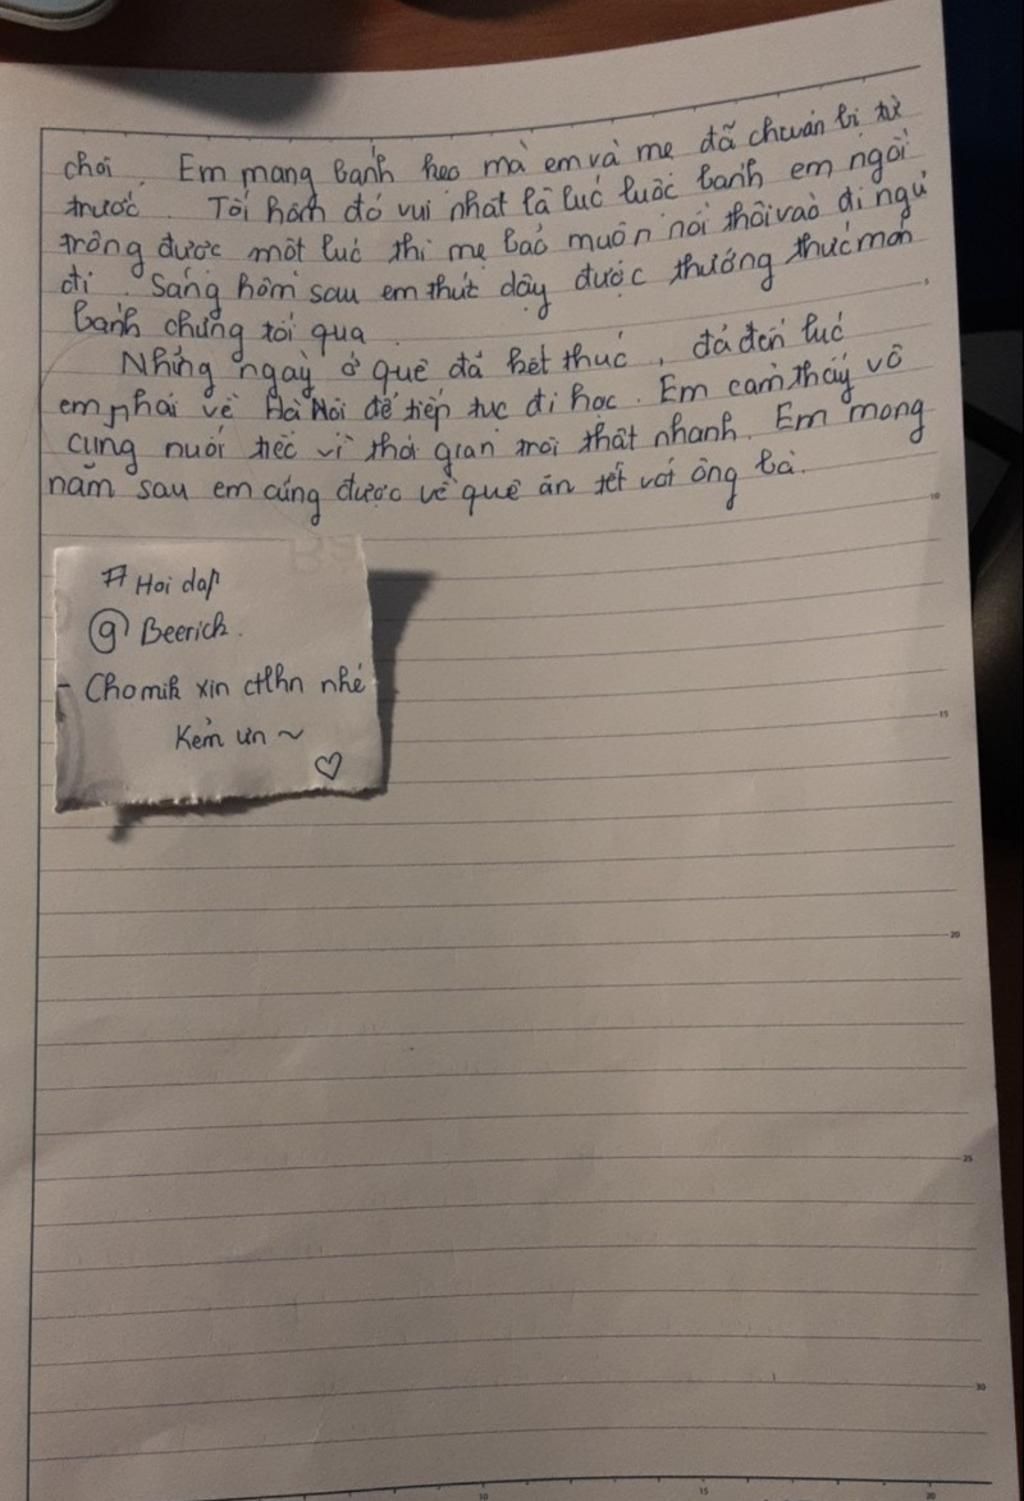 chơi. Em mang bánh kẹo mà em và mẹ đã chuẩn bị từ
trước. Tối hôm đó vui nhất là lúc luộc bánh em ngồi
trông được một lúc thì mẹ bảo muộn rồi thôi vào đi ngủ
đi. Sáng hôm sau em thức dậy được thưởng thức món
bánh chưng tối qua.
Những ngày ở quê đã kết thúc, đã đến lúc
em phải về Hà Nội để tiếp tục đi học. Em cảm thấy vô
cùng nuối tiếc vì thời gian trôi thật nhanh. Em mong
năm sau em cũng được về quê ăn tết với ông bà.
# Hoi dap
@ Beerich.
- Cho mik xin ctlhn nhé
Kẻm ưn ~
♡
10
15
20
25
30
10
15
20